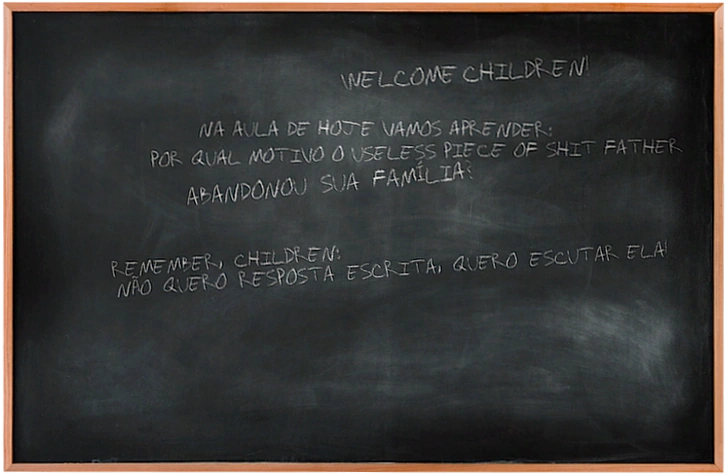 WELCOME CHILDREN!
NA AULA DE HOJE VAMOS APRENDER:
POR QUAL MOTIVO O USELESS PIECE OF SHIT FATHER
ABANDONOU SUA FAMÍLIA?
REMEMBER, CHILDREN:
NÃO QUERO RESPOSTA ESCRITA, QUERO ESCUTAR ELA!